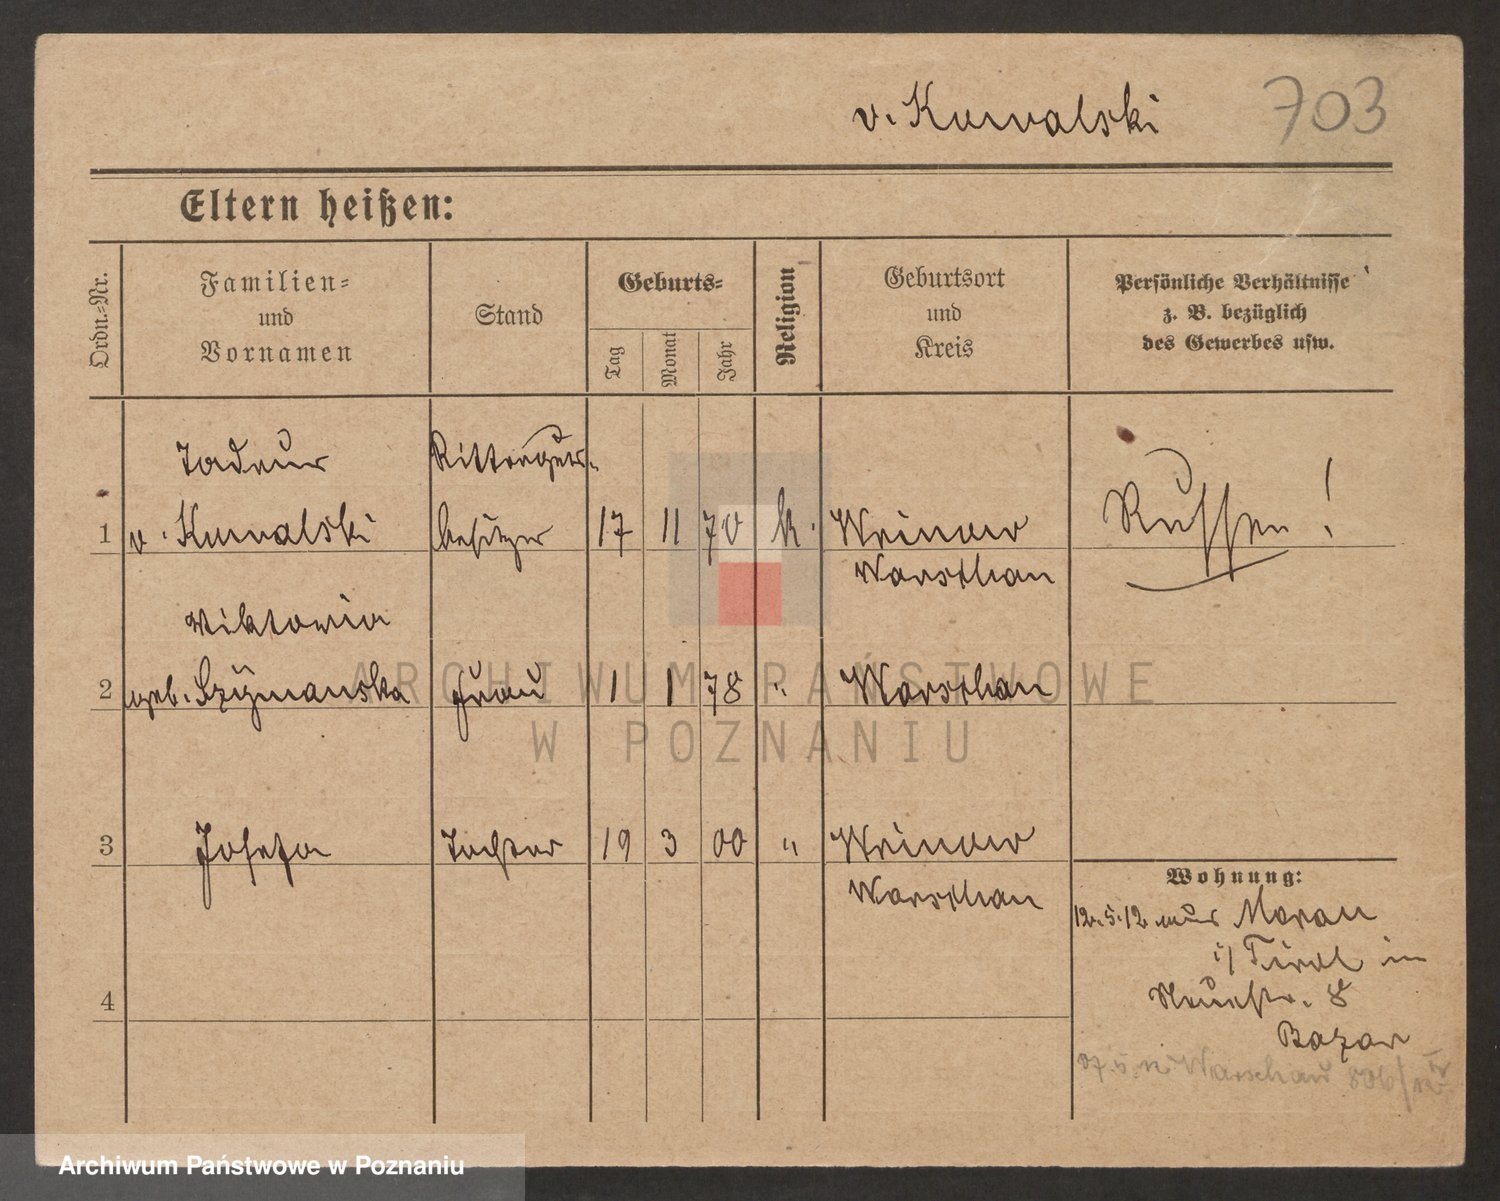 v. Kowalski 703
Eltern heißen:
Ordn.-Nr.
Familien- und Vornamen
Stand
Geburts-
Tag
Monat
Jahr
Religion
Geburtsort und Kreis
Persönliche Verhältnisse z. B. bezüglich des Gewerbes usw.
Tadeus Ritterguts-
1 v. Kowalski besitzer 17 11 70 k. Russen!
Warschau
Viktoria
2 geb. Szÿmanska Frau 1 1 78 " Warschau
3 Josefa Tochter 19 3 00 "
Warschau
Wohnung:
12.5.12 aus Meran
i/ Tirol in
Neuestr. 8
4
Bazar
Warschau
ARCHIWUM PAŃSTWOWE
W POZNANIU
Archiwum Państwowe w Poznaniu